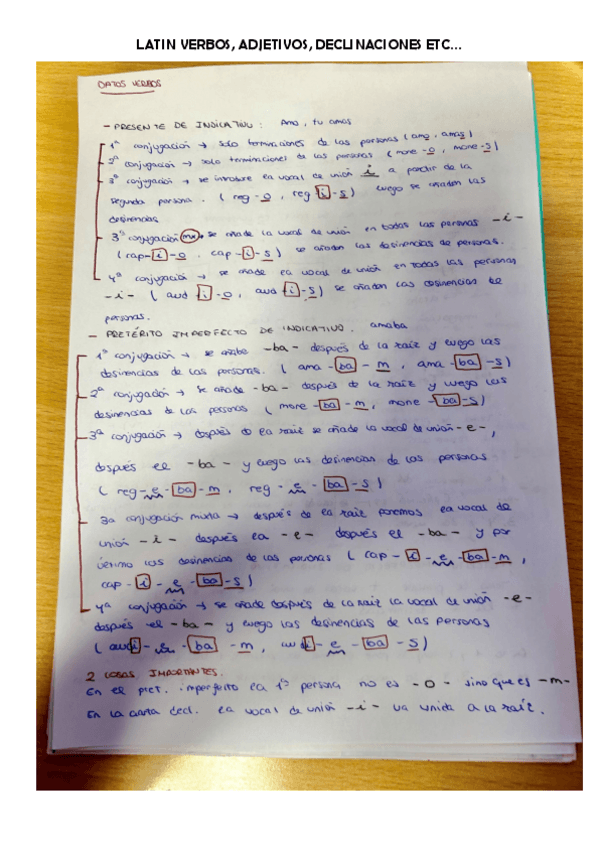 LATIN VERBOS, ADJETIVOS, DECLINACIONES ETC...
DATOS VERBOS
- PRESENTE DE INDICATIVO: Amo, tu amas
1ª conjugación → solo terminaciones de las personas (amo, amas)
2ª conjugación → solo terminaciones de las personas (mone-o, mone-s)
3ª conjugación → se introduce la vocal de unión i a partir de la
segunda persona. (reg-o, reg-i-s) luego se añaden las
desinencias
3ª conjugación mx → se añade la vocal de unión en todas las personas -i-
(cap-i-o. cap-i-s) se añaden las desinencias de personas.
4ª conjugación → se añade la vocal de unión en todas las personas
-i- (aud-i-o, aud-i-s) se añaden las desinencias de
personas.
- PRETÉRITO IMPERFECTO DE INDICATIVO. amaba
1ª conjugación → se añade -ba- después de la raíz y luego las
desinencias de las personas. (ama-ba-m, ama-ba-s)
2ª conjugación → se añade -ba- después de la raíz y luego las
desinencias de las personas (mone-ba-m, mone-ba-s)
3ª conjugación → después de la raíz se añade la vocal de unión -e-,
después el -ba- y luego las desinencias de las personas
(reg-e-ba-m, reg-e-ba-s)
3a conjugación mixta → después de la raíz ponemos la vocal de
unión -i- después la -e- después el -ba- y por
último las desinencias de las personas (cap-i-e-ba-m,
cap-i-e-ba-s)
4ª conjugación → se añade después de la raíz la vocal de unión -e-
después el -ba- y luego las desinencias de las personas
(audi-e-ba-m, audi-e-ba-s)
2 COSAS IMPORTANTES.
En el pret. imperfecto la 1ª persona no es -o- sino que es -m-
En la cuarta decl. la vocal de unión -i- va unida a la raíz.